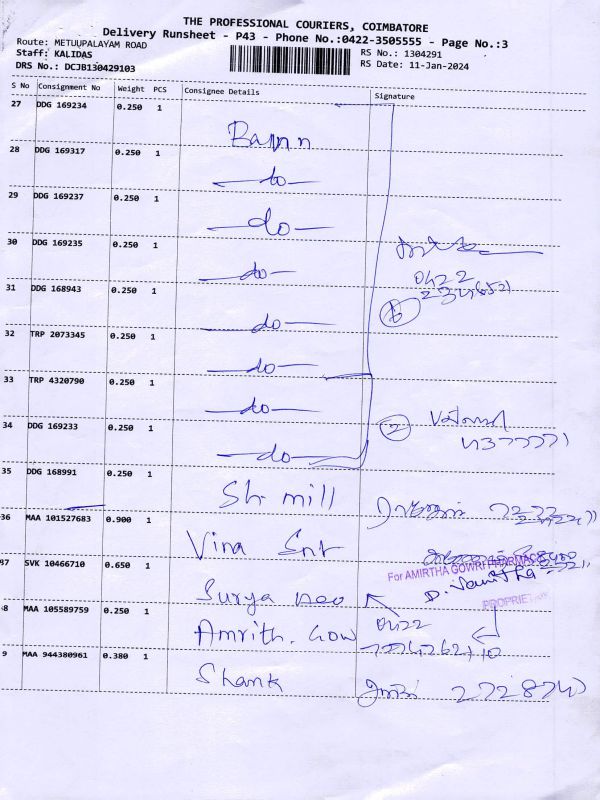 THE PROFESSIONAL COURIERS, COIMBATORE
Delivery Runsheet - P43 - Phone No.:0422-3505555 - Page No.:3
Route: METUUPALAYAM ROAD
Staff: KALIDAS
RS No.: 1304291
DRS No.: DCJB130429103
RS Date: 11-Jan-2024
S No Consignment No Weight PCS Consignee Details Signature
27 DDG 169234 0.250 1
28 DDG 169317 0.250 1 do
29 DDG 169237 0.250 1 do
30 DDG 169235 0.250 1 do
0422
31 DDG 168943 0.250 1 do
6
32 TRP 2073345 0.250 1 do
33 TRP 4320790 0.250 1 do
34 DDG 169233 0.250 1 do
2
35 DDG 168991 0.250 1 Sh mill
36 MAA 101527683 0.900 1 Vira Ent
37 SVK 10466710 0.650 1 Surya neo
For AMIRTHA GOWRI PHARMACY
PROPRIETOR
8 MAA 105589759 0.250 1 Amrith. Gow
0422
9 MAA 944380961 0.380 1 Shank